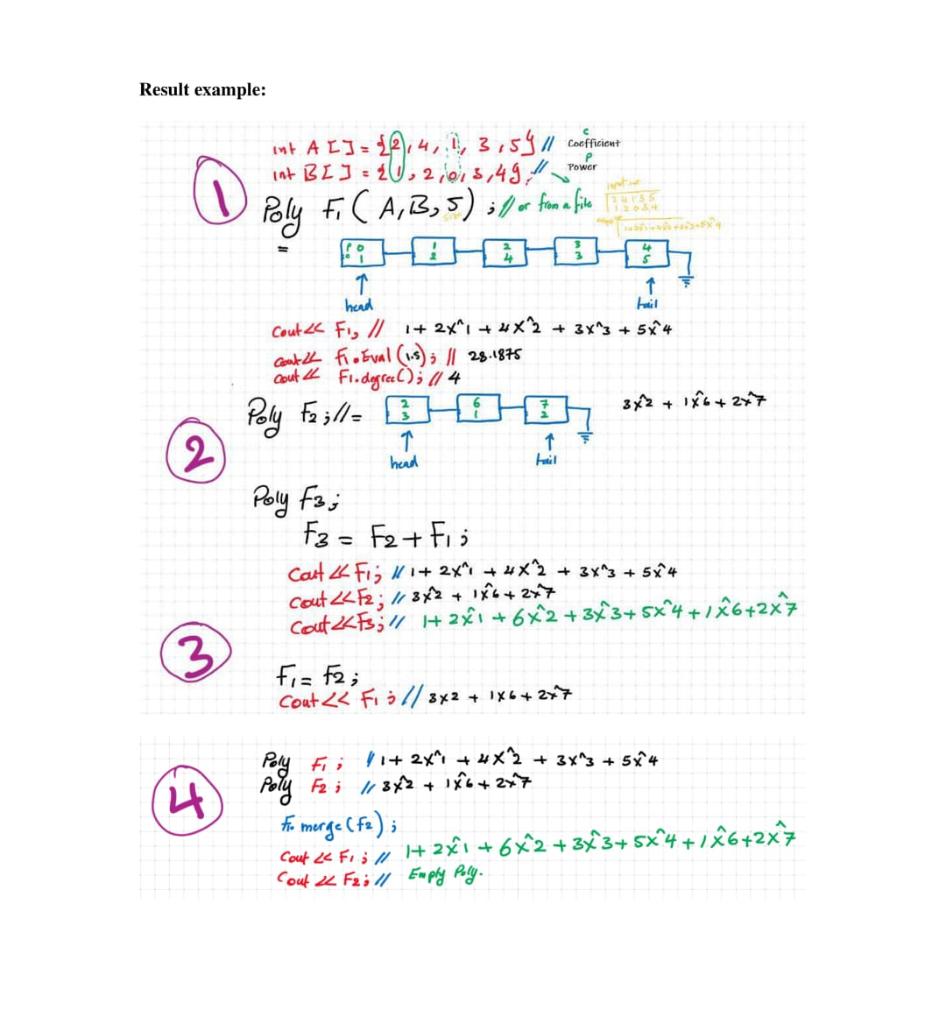 Result example:
1
int A[] = {2, 4, 1, 3, 5} // C Coefficient
int B[] = {1, 2, 0, 3, 4}; // P Power
Poly F1 ( A, B, 5 ) ; // or from a file
=
P 0 1 2 3 4
C 1 2 4 3 5
head tail
Cout << F1, // 1 + 2x^1 + 4x^2 + 3x^3 + 5x^4
cout << F1.Eval(1.5); // 28.1875
cout << F1.degree(); // 4
2
Poly F2 ; // = 3x^2 + 1x^6 + 2x^7
2 6 7
3 1 2
head tail
Poly F3;
F3 = F2 + F1 ;
Cout << F1; // 1 + 2x^1 + 4x^2 + 3x^3 + 5x^4
Cout << F2; // 3x^2 + 1x^6 + 2x^7
Cout << F3; // 1 + 2x^1 + 6x^2 + 3x^3 + 5x^4 + 1x^6 + 2x^7
3
F1 = F2 ;
Cout << F1 ; // 3x2 + 1x6 + 2x^7
4
Poly F1 ; // 1 + 2x^1 + 4x^2 + 3x^3 + 5x^4
Poly F2 ; // 3x^2 + 1x^6 + 2x^7
F1. merge(F2) ;
Cout << F1 ; // 1 + 2x^1 + 6x^2 + 3x^3 + 5x^4 + 1x^6 + 2x^7
Cout << F2 ; // Empty Poly.